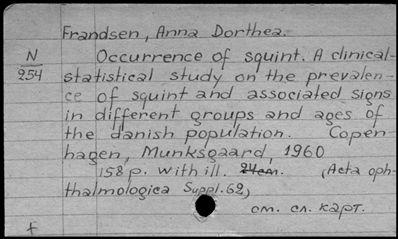 Frandsen, Anna Dorthea.
N
254
Occurrence of squint. A clinical-
statistical study on the prevalen-
ce of squint and associated signs
in different groups and ages of
the danish population. Copen-
hagen, Munksgaard, 1960
158 p. with ill. 24cm. (Acta oph-
thalmologica Suppl. 62)
см. сл. карт.
+